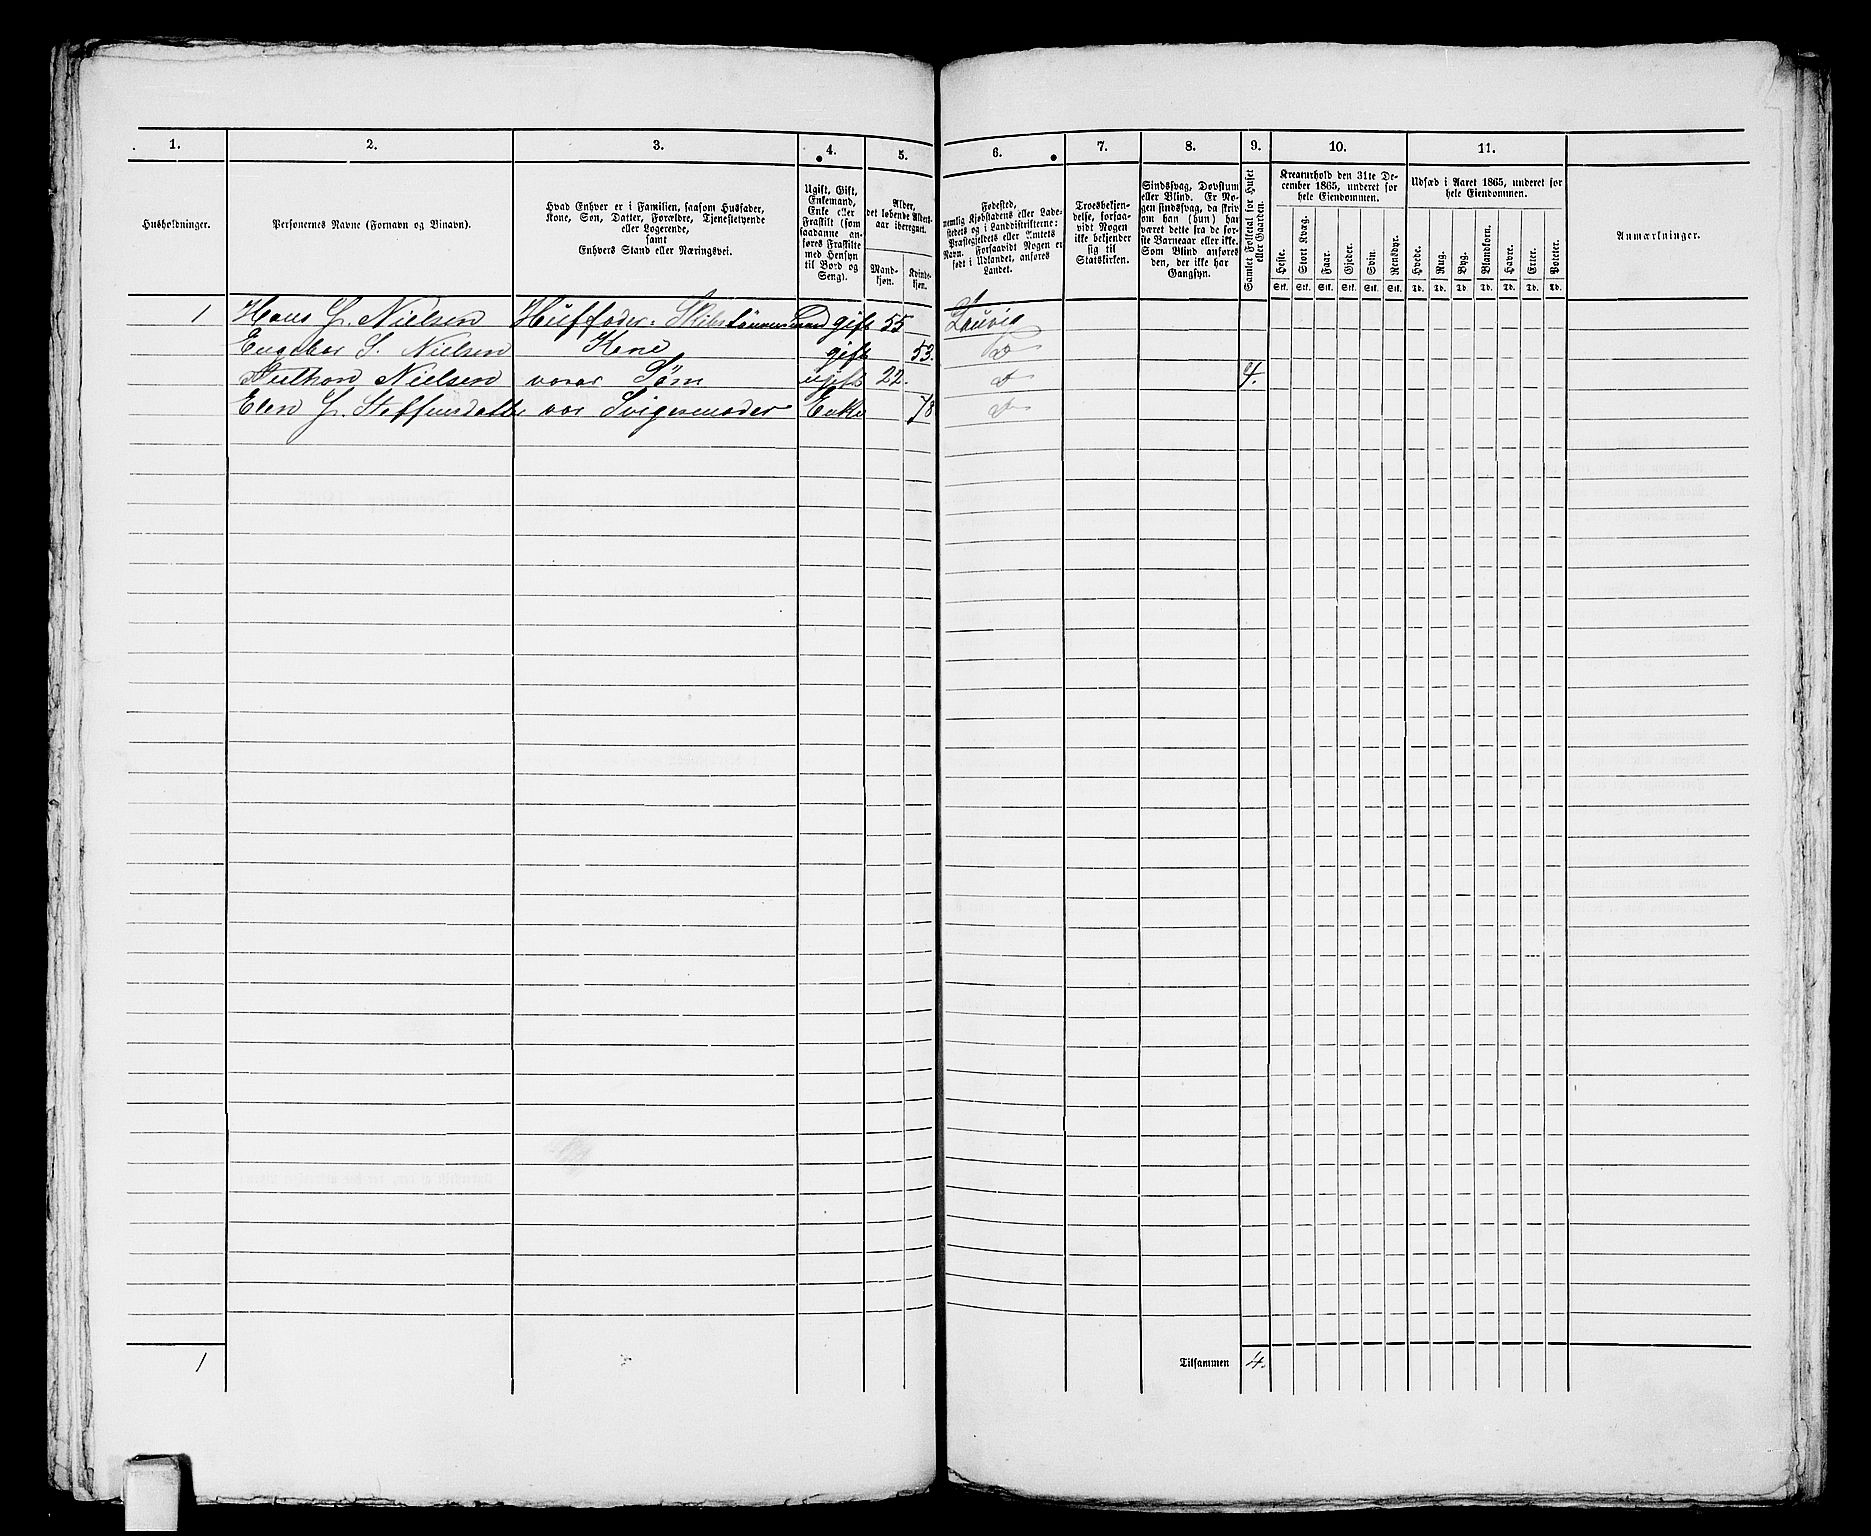 1.
2.
3.
4.
5.
6.
7.
8.
9.
10.
11.
Husholdninger.
Personernes Navne (Fornavn og Binavn).
Hvad Enhver er i Familien, saasom Husfader,
Kone, Søn, Datter, Forældre, Tjenestetyende
eller Logerende,
samt
Enhvers Stand eller Næringsvei.
Ugift, Gift,
Enkemand,
Enke eller
Fraskilt (som
saadanne an-
føres Fraskilte
med Hensyn
til Bord og
Seng).
Alder,
det løbende Alders-
aar iberegnet.
Mand-
kjøn.
Kvinde-
kjøn.
Fødested,
nemlig Kjøbstadens eller Lade-
stedets og i Landdistrikterne:
Præstegjeldets eller Amtets
Navn. Forsaavidt Nogen er
født i Udlandet, anføres
Landet.
Troesbekjen-
delse, forsaa-
vidt Nogen
ikke bekjender
sig til
Statskirken.
Sindssvag, Døvstum
eller Blind. Er No-
gen sindssvag, da skriv
om han (hun) har
været dette fra de før-
ste Barneaar eller ikke.
Som Blind anføres
den, der ikke har
Gangsyn.
Samlet Folketal for Huset
eller Gaarden.
Kreaturhold den 31te De-
cember 1865, underet for
hele Eiendommen.
Heste. Stort Kvæg. Faar. Gjeder. Svin. Rensdyr.
Stk. Stk. Stk. Stk. Stk. Stk.
Udsæd i Aaret 1865, underet for
hele Eiendommen.
Hvede. Rug. Byg. Blandkorn. Havre. Erter. Poteter.
Td. Td. Td Td. Td. Td. Td.
Anmærkninger.
1 Hans Nielsen Husfader gift 55 Lauvig
S. Nielsen Kone gift 53. D
Nielsen vores Søm ugift 22. D 4.
Elen vor Svigermoder Enke 78 D
1 Tilsammen 4.